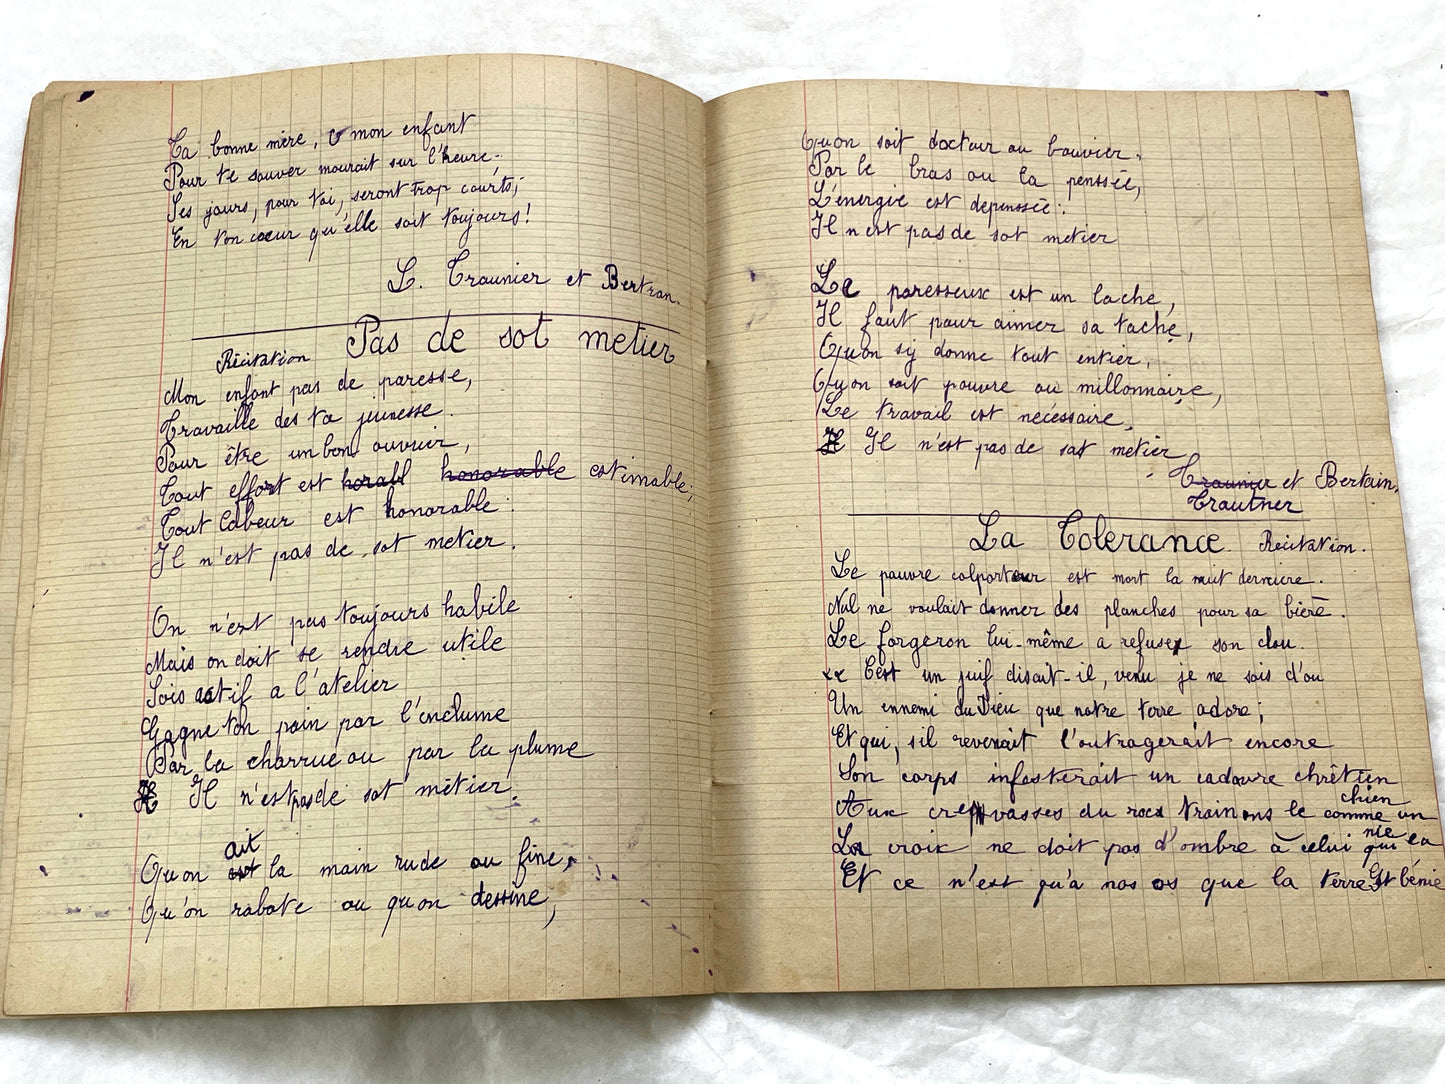 Ta bonne mère, O mon enfant
Pour te sauver mourait sur l'heure,
Ses jours, pour toi, seront trop courts;
En ton coeur qu'elle soit toujours!
L. Traunier et Bertran.
Récitation Pas de sot metier
Mon enfant pas de paresse,
Travaille des ta jeunesse.
Pour être un bon ouvrier,
Tout effort est horabl honorable estimable;
Tout labeur est honorable
Il n'est pas de sot metier.
On n'est pas toujours habile
Mais on doit se rendre utile
Sois actif a l'atelier
Gagne ton pain par l'enclume
Par la charrue ou par la plume
Il Il n'est pas de sot métier.
ait
Qu'on est la main rude ou fine,
Qu'on rabote ou qu'on dessine,
Qu'on soit docteur ou bouvier.
Par le bras ou la pensée,
L'énergie est depenseé:
Il n'est pas de sot metier
Le paresseux est un lache,
Il faut pour aimer sa tache,
Qu'on s'y donne tout entier,
Qu'on soit pauvre ou millonnaire,
Le travail est necéssaire,
Il Il n'est pas de sot metier
Traunier et Bertain.
Trautner
La Tolerance. Récitation.
Le pauvre colporteur est mort la nuit derniere.
Nul ne voulait donner des planches pour sa bière.
Le forgeron lui-même a refuser son clou.
"C'est un juif disait-il, venu je ne sais d'ou
Un ennemi du Dieu que notre terre adore;
Et qui, s'il revenait l'outragerait encore
Son corps infesterait un cadavre chrêtien
chien
Aux crevasses du rocs trainons le comme un
nie
La croix ne doit pas d'ombre à celui qui la
Et ce n'est qu'a nos os que la terre est bénie